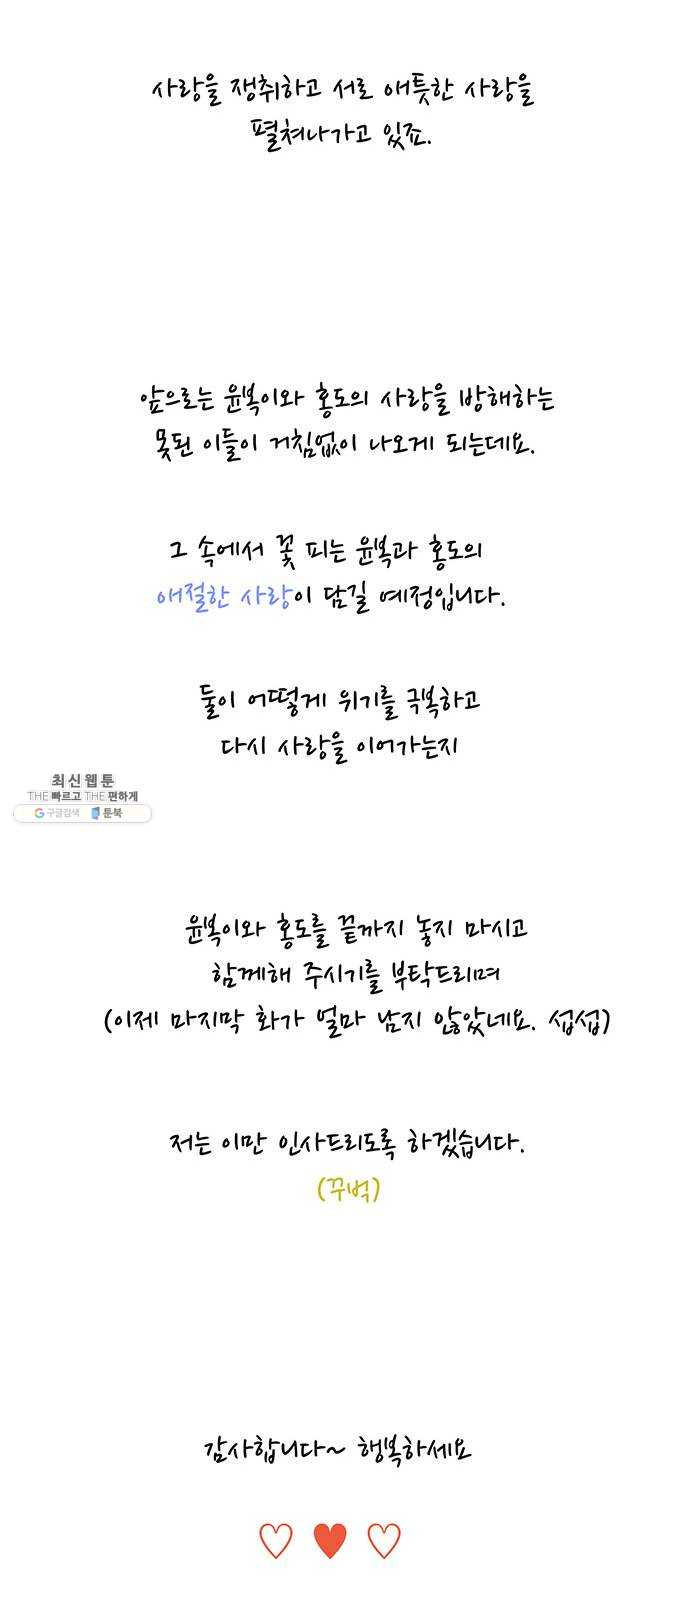 사랑을 쟁취하고 서로 애틋한 사랑을
펼쳐나가고 있죠.
앞으로는 윤복이와 홍도의 사랑을 방해하는
못된 이들이 거침없이 나오게 되는데요.
그 속에서 꽃 피는 윤복과 홍도의
애절한 사랑이 담길 예정입니다.
둘이 어떻게 위기를 극복하고
다시 사랑을 이어가는지
최신웹툰
THE 빠르고 THE 편하게
구글검색 툰북
윤복이와 홍도를 끝까지 놓지 마시고
함께해 주시기를 부탁드리며
(이제 마지막 화가 얼마 남지 않았네요. 섭섭)
저는 이만 인사드리도록 하겠습니다.
(꾸벅)
감사합니다~ 행복하세요